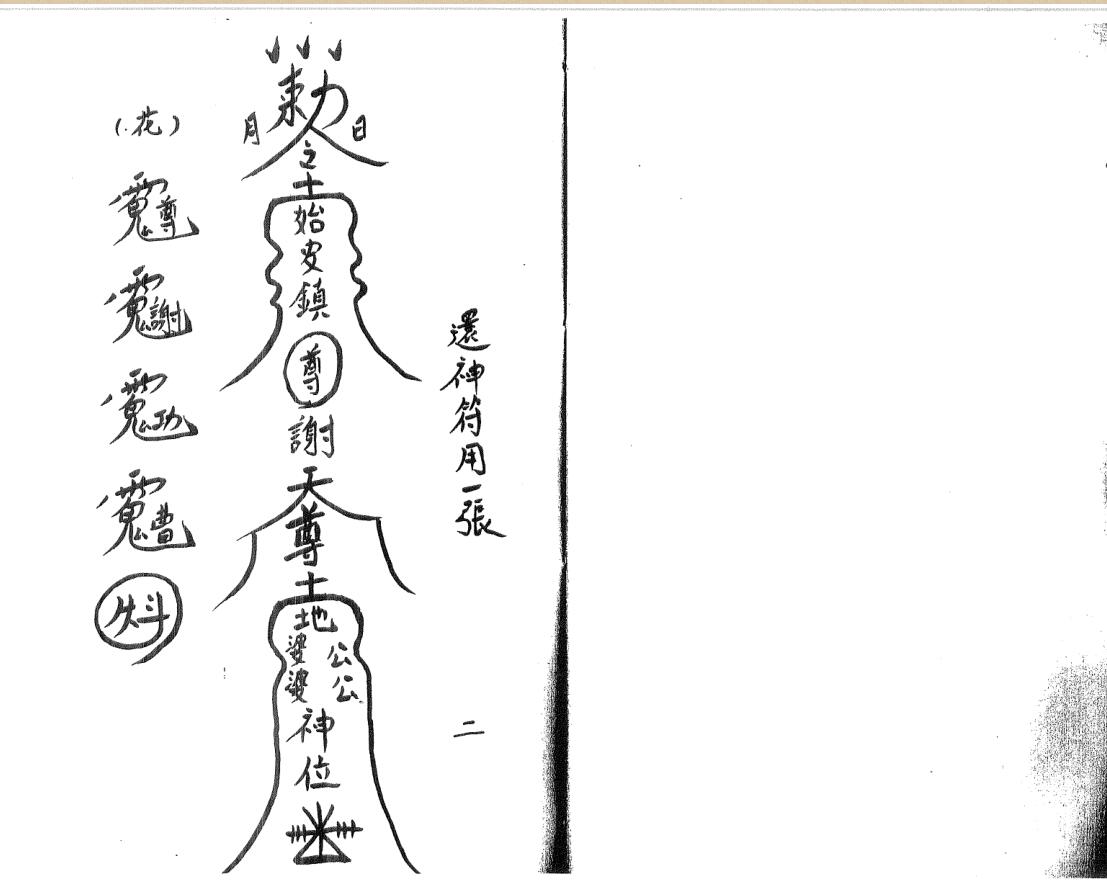 還神符用一張
二
勅
日
月
令
始安鎮
尊
謝
天
尊
土
地
公公
婆婆
神位
(花)
尊
謝
功
曹